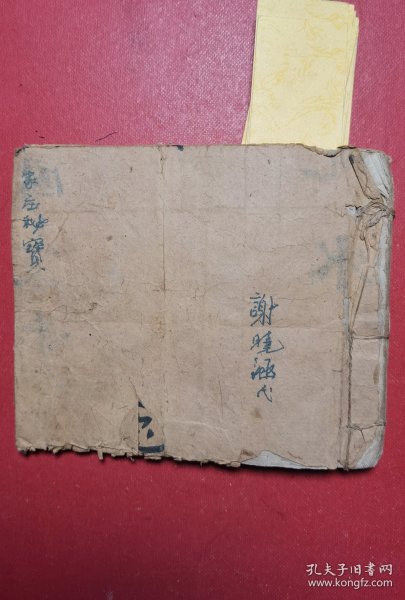 家庭秘寶
謝曉
孔夫子旧书网
www.kongfz.com